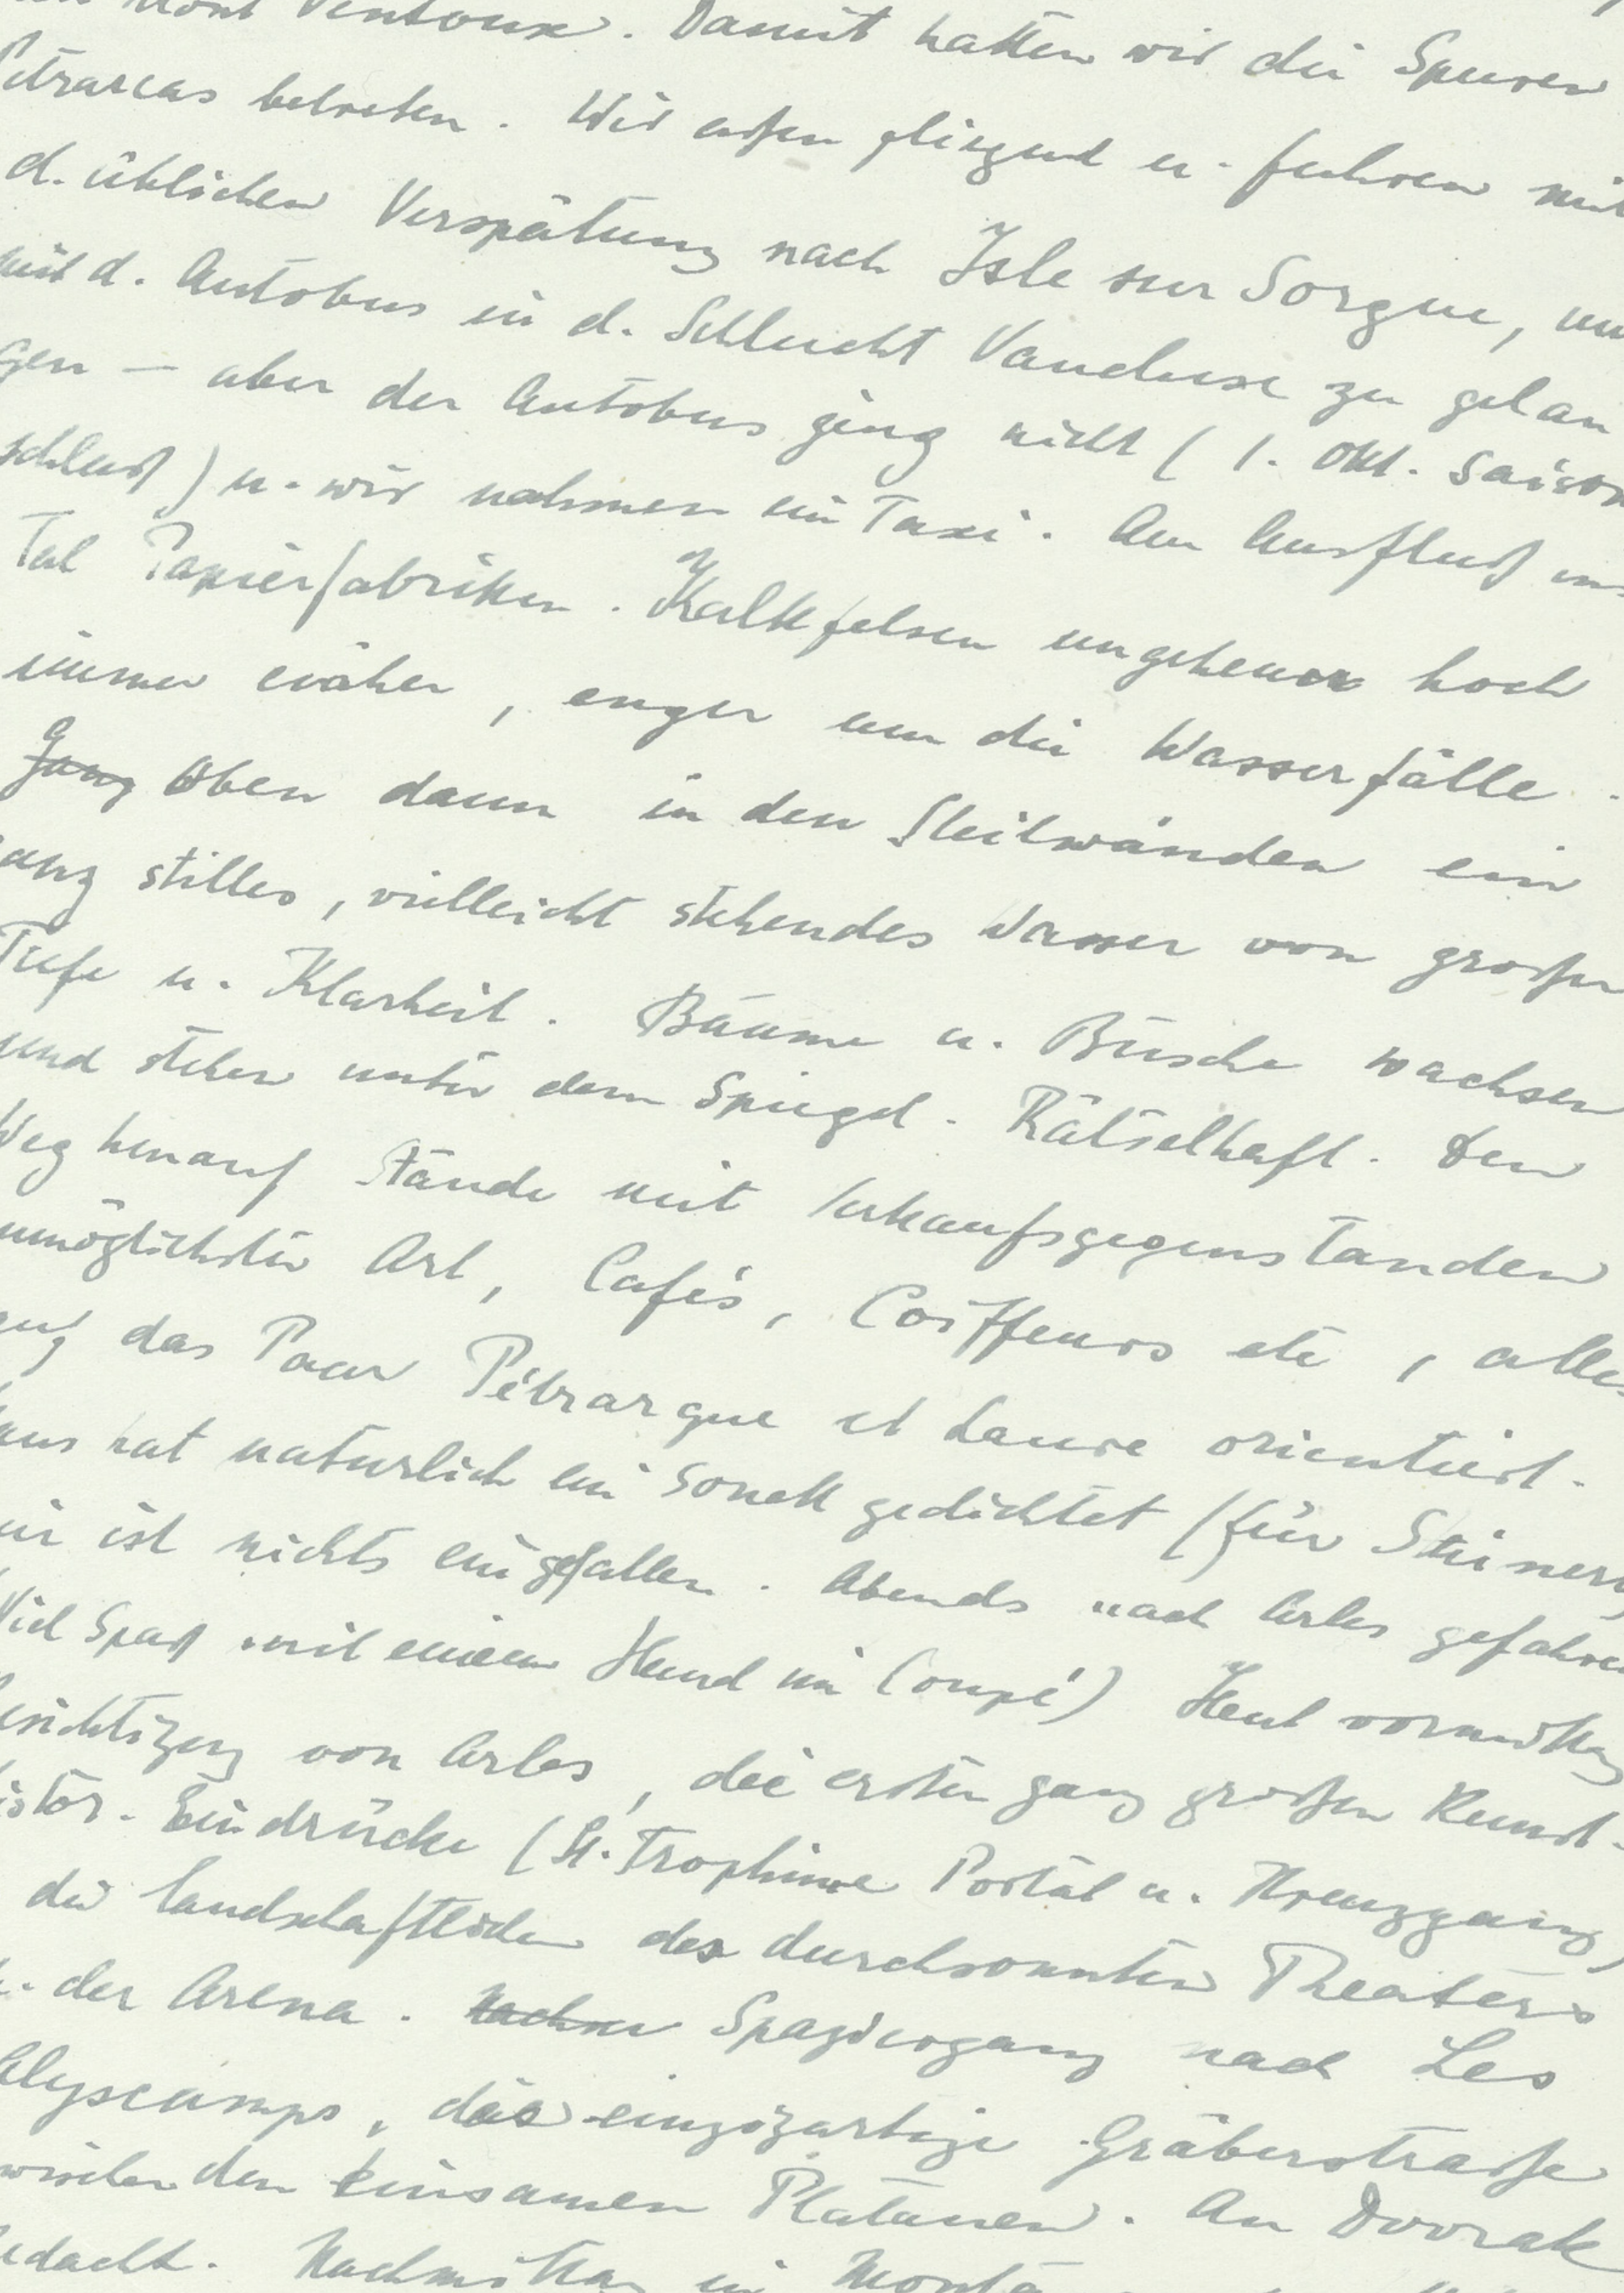 Mont Ventoux. Damit hatten wir die Spuren
Petrarcas betreten. Wir aßen fliegend u. fuhren mit
d. üblichen Verspätung nach Isle sur Sorgue, um
mit d. Autobus in d. Schlucht Vaucluse zu gelan
gen — aber der Autobus ging nicht (1. Okt. Saison
schluß) u. wir nahmen ein Taxi. Am Ausfluß ins
Tal Papierfabriken. Kalkfelsen ungeheuer hoch
immer näher, enger um die Wasserfälle.
Ganz Oben dann in den Steilwänden ein
ganz stilles, vielleicht stehendes Wasser von großer
Tiefe u. Klarheit. Bäume u. Büsche wachsen
und stehen unter dem Spiegel. Rätselhaft. Den
Weg herauf Stände mit Verkaufsgegenständen
unmöglichster Art, Cafés, Coiffeurs etc, alles
auf das Paar Pétrarque et Laure orientiert.
hat natürlich ein Sonett gedichtet (für Steiners)
mir ist nichts eingefallen. Abends nach Arles gefahren
Viel Spaß mit einem Hund im Coupé) Heut vormittag
Besichtigung von Arles, die ersten ganz großen Kunst-
histor. Eindrücke (St. Trophime Portal u. Kreuzgang)
die landschaftlichen des durchsonnten Theaters
u. der Arena. Spaziergang nach Les
Alyscamps, die einzigartige Gräberstraße
zwischen den einsamen Platanen. An Dvorak
gedacht. Nachmittag in